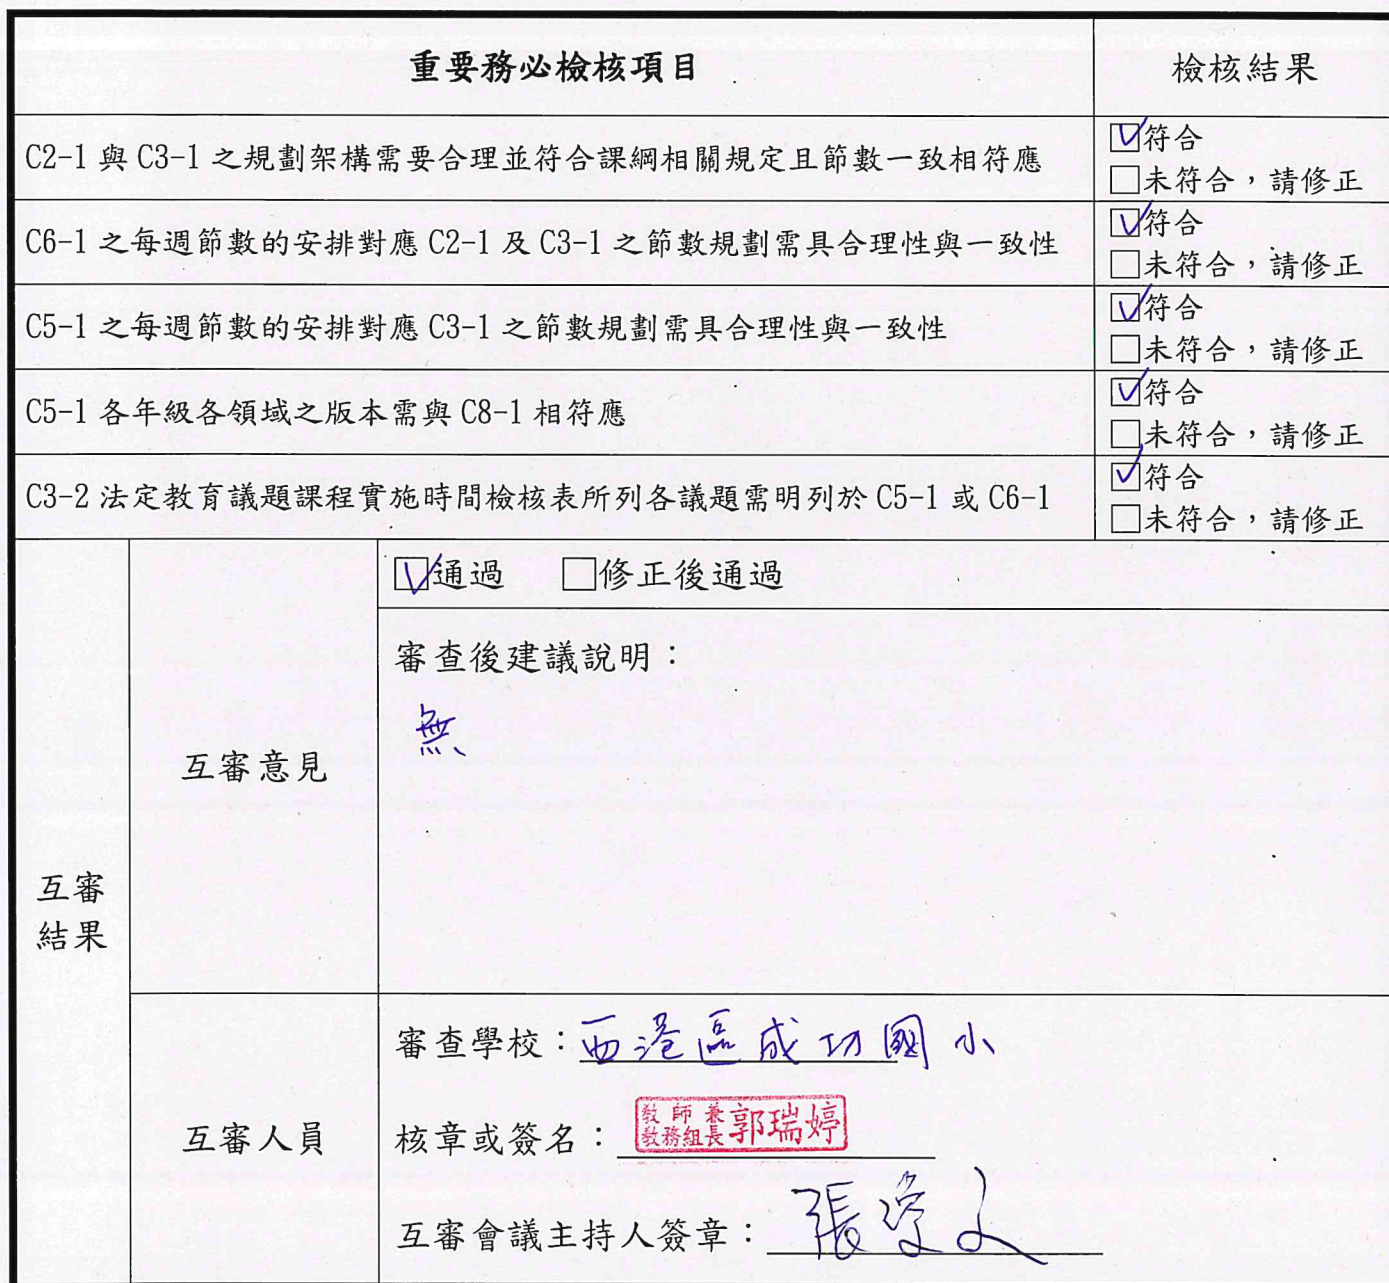 重要務必檢核項目 檢核結果
C2-1 與 C3-1 之規劃架構需要合理並符合課綱相關規定且節數一致相符應
☑符合
□未符合，請修正
C6-1 之每週節數的安排對應 C2-1 及 C3-1 之節數規劃需具合理性與一致性
☑符合
□未符合，請修正
C5-1 之每週節數的安排對應 C3-1 之節數規劃需具合理性與一致性
☑符合
□未符合，請修正
C5-1 各年級各領域之版本需與 C8-1 相符應
☑符合
□未符合，請修正
C3-2 法定教育議題課程實施時間檢核表所列各議題需明列於 C5-1 或 C6-1
☑符合
□未符合，請修正
互審
結果
互審意見
☑通過 □修正後通過
審查後建議說明：
無
互審人員
審查學校：西港區成功國小
核章或簽名：
教師兼
教務組長
郭瑞婷
互審會議主持人簽章：張